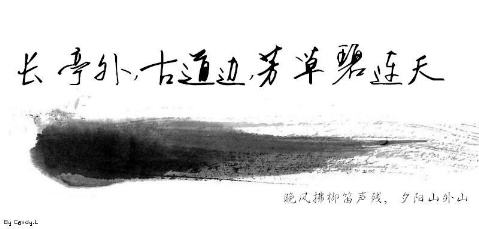 长亭外，古道边，芳草碧连天
晚风拂柳笛声残，夕阳山外山
By Candy.L